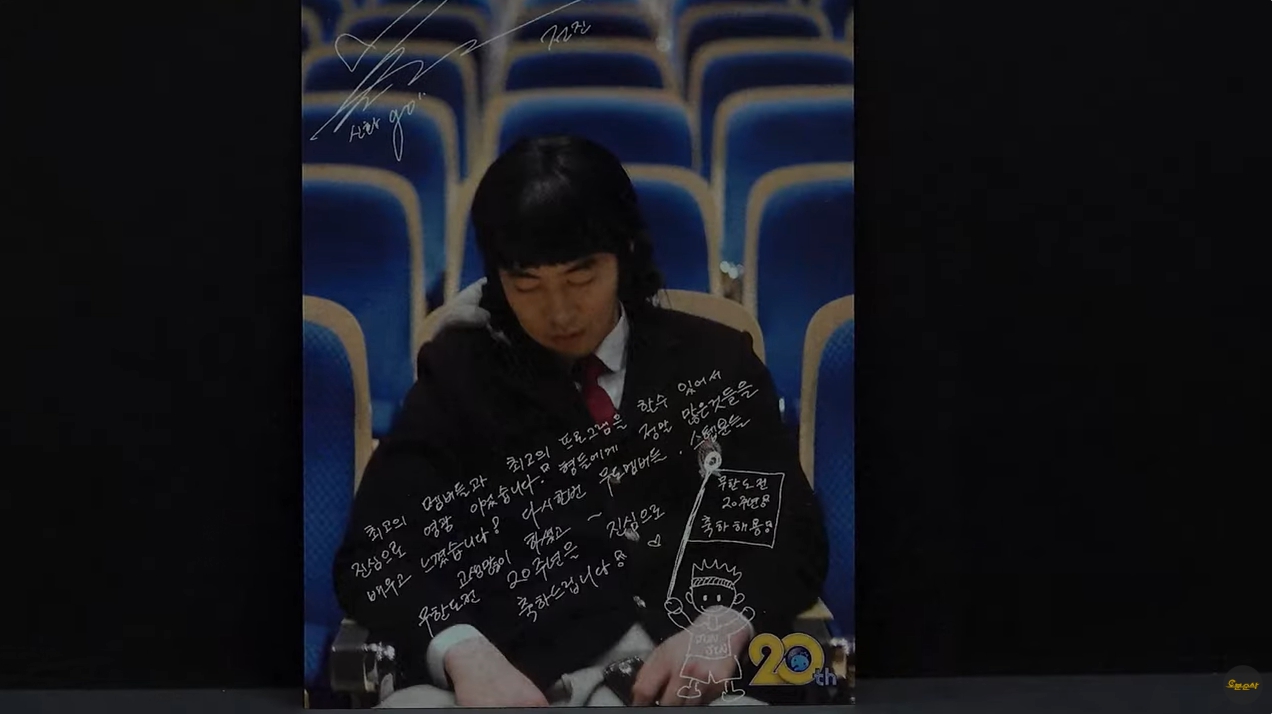 전진
신화 go"
최고의 멤버들과 최고의 프로그램을 할수 있어서
진심으로 영광 이었습니다! 형들에게 정말 많은것들을
배우고 느꼈습니다! 다시한번 무도멤버들, 스텝분들
고생많이 하셨고 ~
무한도전 20주년을 진심으로
축하드립니다!
무한도전
20주년!
축하해용!
JUN
JIN
20th
오분순삭